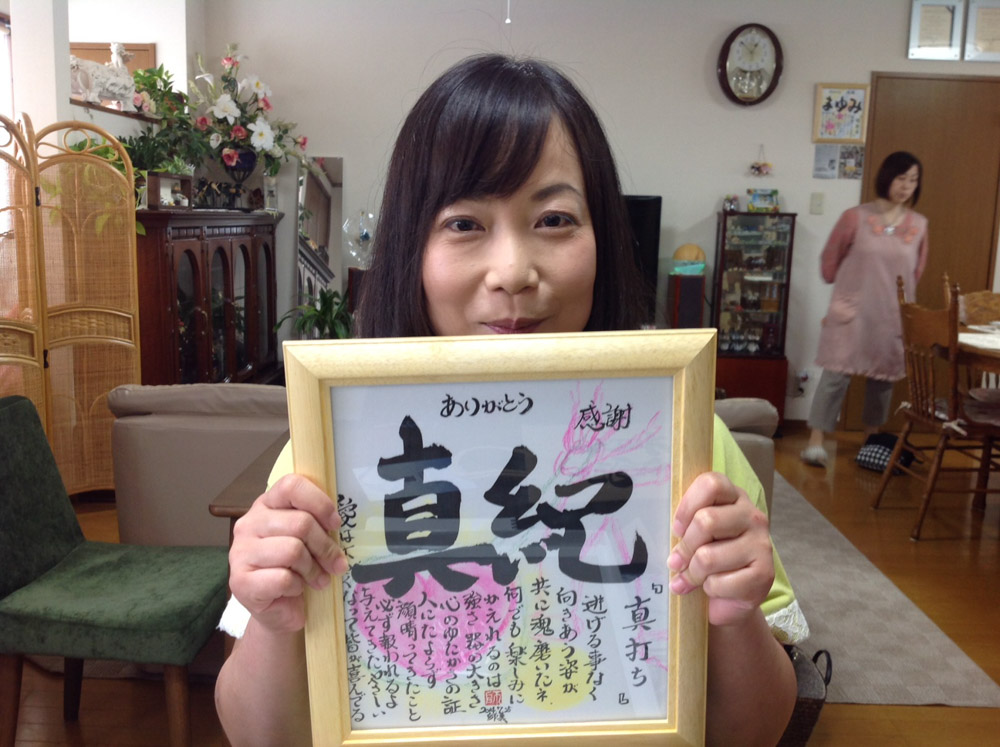 ありがとう
感謝
真紀
「真打ち」
逃げる事なく
向きあう姿が
共に魂磨いたネ
何ども楽しみに
かえれるのは
強さ器の大きさ
心のゆたかさの証
人にたよらず
頑晴ってきたこと
必ず報われるよ
与えてきたやさしい
まゆみ